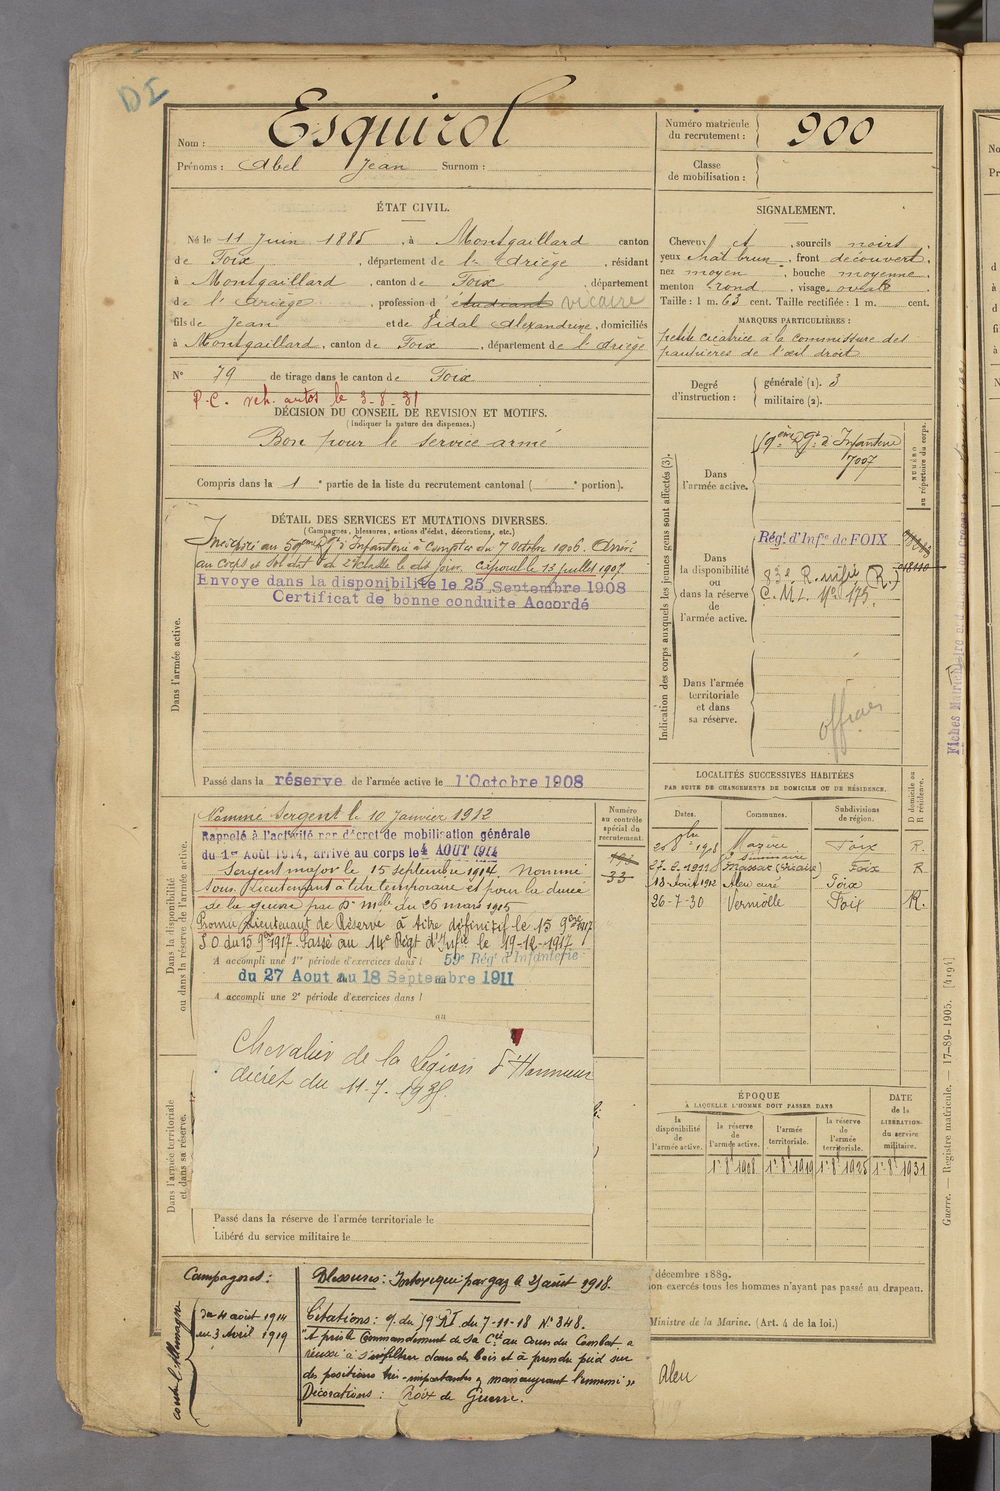 DI
Nom : Esquirol
Prénoms : Abel Jean Surnom :
Numéro matricule du recrutement : 900
Classe de mobilisation :
ÉTAT CIVIL.
Né le 11 Juin 1885, à Montgaillard canton
de Foix, département de l'Ariège, résidant
à Montgaillard, canton de Foix, département
de l'Ariège, profession d'étudiant vicaire
fils de Jean et de Vidal Alexandrine, domiciliés
à Montgaillard, canton de Foix, département de l'Ariège
N° 79 de tirage dans le canton de Foix
P.C. reh. autos le 3-8-31
DÉCISION DU CONSEIL DE REVISION ET MOTIFS.
(Indiquer la nature des dispenses.)
Bon pour le service armé
Compris dans la 1e partie de la liste du recrutement cantonal ( e portion).
SIGNALEMENT.
Cheveux et, sourcils noirs,
yeux chat brun, front découvert,
nez moyen, bouche moyenne,
menton rond, visage ovale
Taille : 1 m. 63 cent. Taille rectifiée : 1 m. cent.
MARQUES PARTICULIÈRES :
petite cicatrice à la commissure des
paupières de l'œil droit
Degré d'instruction :
générale (1). 3
militaire (2).
DÉTAIL DES SERVICES ET MUTATIONS DIVERSES.
(Campagnes, blessures, actions d'éclat, décorations, etc.)
Dans l'armée active.
Incorporé au 59ème Rgt d'Infanterie à compter du 7 Octobre 1906. Arrivé
au corps et soldat de 2e classe le dit jour. Caporal le 13 Juillet 1907.
Envoyé dans la disponibilité le 25 Septembre 1908
Certificat de bonne conduite Accordé
Passé dans la réserve de l'armée active le 1 Octobre 1908
Indication des corps auxquels les jeunes gens sont affectés (3).
NUMÉRO au répertoire du corps.
Dans l'armée active.
59ème Rgt d'Infanterie
7007
Dans la disponibilité ou dans la réserve de l'armée active.
Régt d'Infie de FOIX
83e R. mfié (R.)
C. Mt. No 175.
018110
Dans l'armée territoriale et dans sa réserve.
officier
LOCALITÉS SUCCESSIVES HABITÉES
PAR SUITE DE CHANGEMENTS DE DOMICILE OU DE RÉSIDENCE.
Dates. Communes. Subdivisions de région. D domicile ou R résidence.
1908 Mazères Foix R.
27-2-1911 Massat (Vicaire) Foix R
13 Août 1912 Aleu curé Foix
26-7-30 Verniolle Foix R.
Dans la disponibilité ou dans la réserve de l'armée active.
Numéro au contrôle spécial du recrutement.
33
Nommé Sergent le 10 Janvier 1912
Rappelé à l'activité par décret de mobilisation générale
du 1er Août 1914, arrivé au corps le 4 AOUT 1914
Sergent major le 15 septembre 1914. Nommé
Sous Lieutenant à titre temporaire et pour la durée
de la guerre par Don mlle du 26 mars 1915
Promu Lieutenant de Réserve à titre définitif le 15 9bre 1917
J.O du 15 9bre 1917. Passé au 14e Régt d'Infie le 19-12-1917
A accompli une 1re période d'exercices dans l 59e Rég d'Infanterie
du 27 Aout au 18 Septembre 1911
A accompli une 2e période d'exercices dans l
au
Chevalier de la Légion d'Honneur
décret du 11-7-1935.
Dans l'armée territoriale et dans sa réserve.
Passé dans la réserve de l'armée territoriale le
Libéré du service militaire le
ÉPOQUE
À LAQUELLE L'HOMME DOIT PASSER DANS
la disponibilité de l'armée active. la réserve de l'armée active. l'armée territoriale. la réserve de l'armée territoriale.
DATE de la LIBÉRATION du service militaire.
1r 8e 1908 1r 8e 1919 1r 8e 1925 1r 8e 1931
décembre 1889.
on exercés tous les hommes n'ayant pas passé au drapeau.
Ministre de la Marine. (Art. 4 de la loi.)
Campagnes :
contre l'Allemagne
du 4 août 1914
au 3 Avril 1919
Blessures : Intoxiqué par gaz le 25 août 1918.
Citations : O. du 59 RI du 7-11-18 N° 348.
"A pris le Commandement de sa Cie au Cours du Combat a
réussi à s'infiltrer dans des bois et à prendre pied sur
des positions très-importantes en manœuvrant l'ennemi"
Décorations : Croix de Guerre.
Aleu
Guerre. — Registre matricule. — 17-89-1905. [4194]